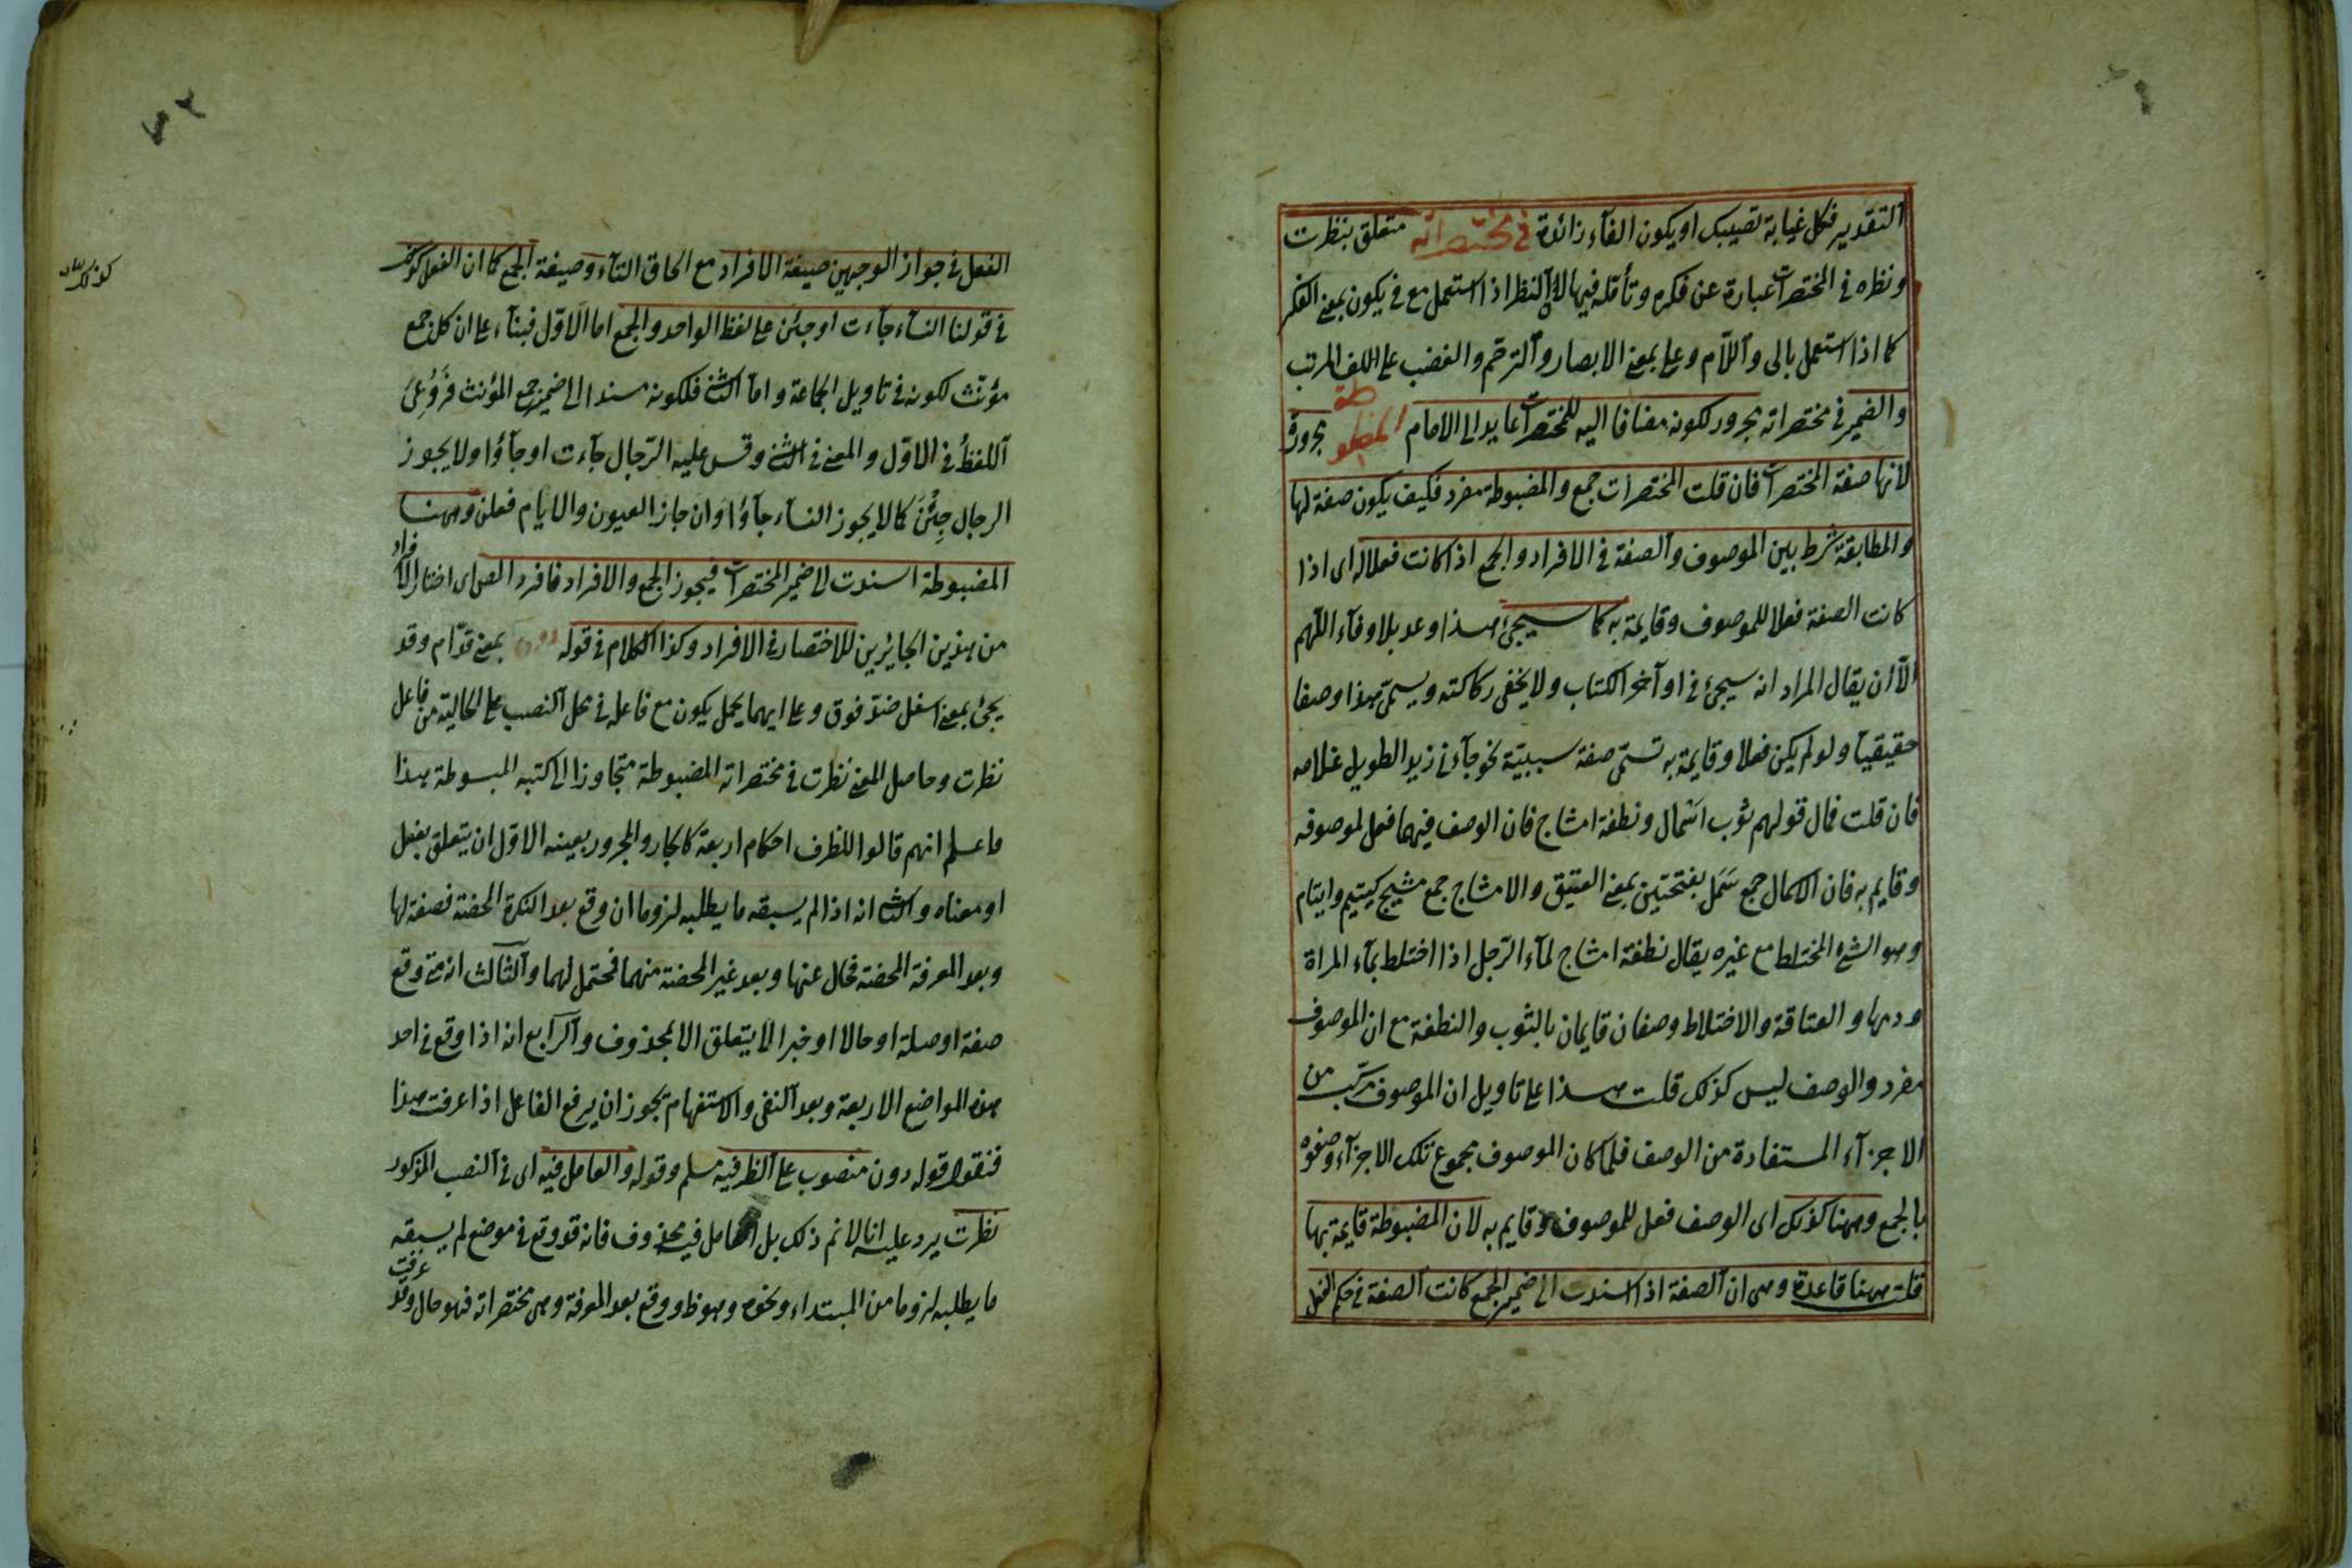 التقدير فكل غيابة تصيبك او يكون الفآء زائدة في مختصراته متعلق بنظرت
ونظره في المختصرات عبارة عن فكره وتأمله فيها لان النظر اذا استعمل مع في يكون بمعنى الفكر
كما اذا استعمل بالى واللآم وعلى بمعنى الابصار والترحّم والغضب على اللف المرتب
والضمير في مختصراته مجرور لكونه مضافا اليه للمختصرات عايد الى الامام المضبوطة مجرورة
لانها صفة المختصرات فان قلت المختصرات جمع والمضبوطة مفرد فكيف يكون صفة لها
والمطابقة شرط بين الموصوف والصفة في الافراد والجمع اذا كانت فعلا له اى اذا
كانت الصفة فعلا للموصوف وقايمة به كما سيجئ هذا وعد بلا وفآء اللّهم
الاّ ان يقال المراد انه سيجئ في اوآخر الكتاب ولا يخفى ركاكته ويسمّى هذا وصفا
حقيقيّا ولو لم يكن فعلا وقايمة به تسمّى صفة سببيّة نحو جآءنى زيد الطويل غلامه
فان قلت فما ل قولهم ثوب اسمال ونطفة امشاج فان الوصف فيهما فعل لموصوفه
وقايم به فان الاسمال جمع سَمَل بفتحتين بمعنى العتيق والامشاج جمع مشيج كيتيم وايتام
وهو الشئ المختلط مع غيره يقال نطفة امشاج لمآء الرّجل اذا اختلط بمآء المراة
ودمها والعتاقة والاختلاط وصفان قايمان بالثوب والنطفة مع ان الموصوف
مفرد والوصف ليس كذلك قلت هذا على تاويل ان الموصوف مركّب من
الاجزآء المستفادة من الوصف فلما كان الموصوف مجموع تلك الاجزآء وصفوه
بالجمع وههنا كذلك اى الوصف فعل للموصوف وقايم به لان المضبوطة قايمة بها
قلت ههنا قاعدة وهى ان الصفة اذا اسندت الى ضمير الجمع كانت الصفة في حكم الفعل
الفعل في جواز الوجهين صيغة الافراد مع الحاق التآء وصيغة الجمع كما ان الفعل كذلك
في قولنا النسآء جآءت او جئن على لفظ الواحد والجمع اما الاوّل فبنآء على ان كل جمع
مؤنث لكونه في تاويل الجماعة واما الثانى فلكونه مسندا الى ضمير جمع المؤنث فَرُوعِىَ
اللفظُ في الاوّل والمعنى في الثانى وقس عليه الرّجال جآءت او جآؤا ولا يجوز
الرجال جِئْنَ كما لا يجوز النسآء جآؤا وان جاز العيون والايام فعلن وههنا
المضبوطة اسندت الى ضمير المختصرات فيجوز الجمع والافراد فافرد المص اى اختار الافراد
من هذين الجايزين للاختصار في الافراد وكذا الكلام في قوله دون بمعنى قدّام وقد
يجئ بمعنى اسفل ضدّ فوق وعلى ايهما يحمل يكون مع فاعله في محل النصب على الحالية من فاعل
نظرت وحاصل المعنى نظرت في مختصراته المضبوطة متجاوزا الى كتبه المبسوطة هذا
فاعلم انهم قالوا للظرف احكام اربعة كالجار والمجرور بعينه الاوّل ان يتعلق بفعل
او معناه والثانى انه اذا لم يسبقه ما يطلبه لزوما ان وقع بعد النكرة المحضة فصفة لها
وبعد المعرفة المحضة فحال عنها وبعد غير المحضة منهما فمحتمل لهما والثالث انه متى وقع
صفة او صلة او حالا او خبرا لا يتعلق الا بمحذوف والرّابع انه اذا وقع في احد
هذه المواضع الاربعة وبعد النفى والاستفهام يجوز ان يرفع الفاعل اذا عرفت هذا
فنقول قوله دون منصوب على الظرفية مسلم وقوله والعامل فيه اى في النصب المذكور
نظرت يرد عليه انا لا نم ذلك بل العامل فيه محذوف فانه قد وقع في موضع لم يسبقه
ما يطلبه لزوما من المبتداء ونحوه وهو ظ ووقع بعد المعرفة وهى مختصراته فهو حال وقد عرفت